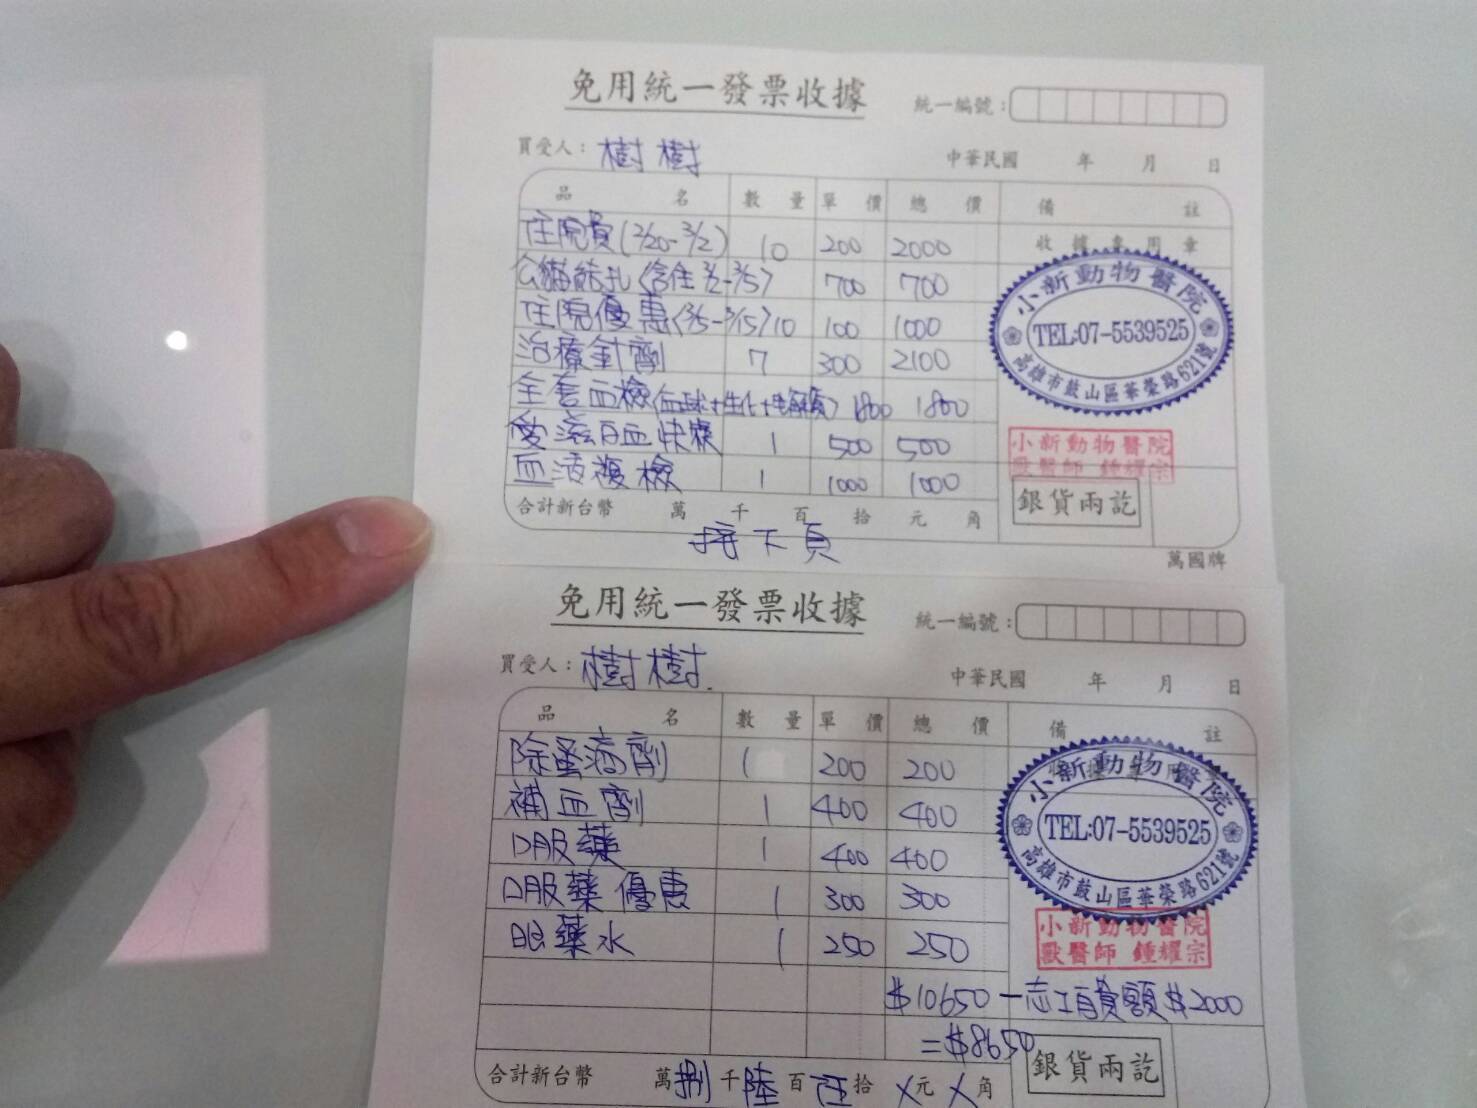 免用統一發票收據
統一編號：
買受人：樹樹
中華民國 年 月 日
品名 數量 單價 總價 備註
收據專用章
住院費(2/20-3/2) 10 200 2000
公貓結扎(含住3/2-3/5) 700 700
住院優惠(3/5-3/15) 10 100 1000
治療針劑 7 300 2100
全套血檢(血球+生化+電解質) 1800 1800
愛滋白血快篩 1 500 500
血液複檢 1 1000 1000
小新動物醫院
TEL:07-5539525
高雄市鼓山區華榮路621號
小新動物醫院
獸醫師 鍾耀宗
銀貨兩訖
合計新台幣 萬 千 百 拾 元 角
接下頁
萬國牌
免用統一發票收據
統一編號：
買受人：樹樹.
中華民國 年 月 日
品名 數量 單價 總價 備註
除蚤滴劑 1 200 200
補血劑 1 400 400
口服藥 1 400 400
口服藥優惠 1 300 300
眼藥水 1 250 250
小新動物醫院
TEL:07-5539525
高雄市鼓山區華榮路621號
小新動物醫院
獸醫師 鍾耀宗
$10650-志工自費額$2000
=$8650
銀貨兩訖
合計新台幣 萬捌千陸百伍拾X元X角